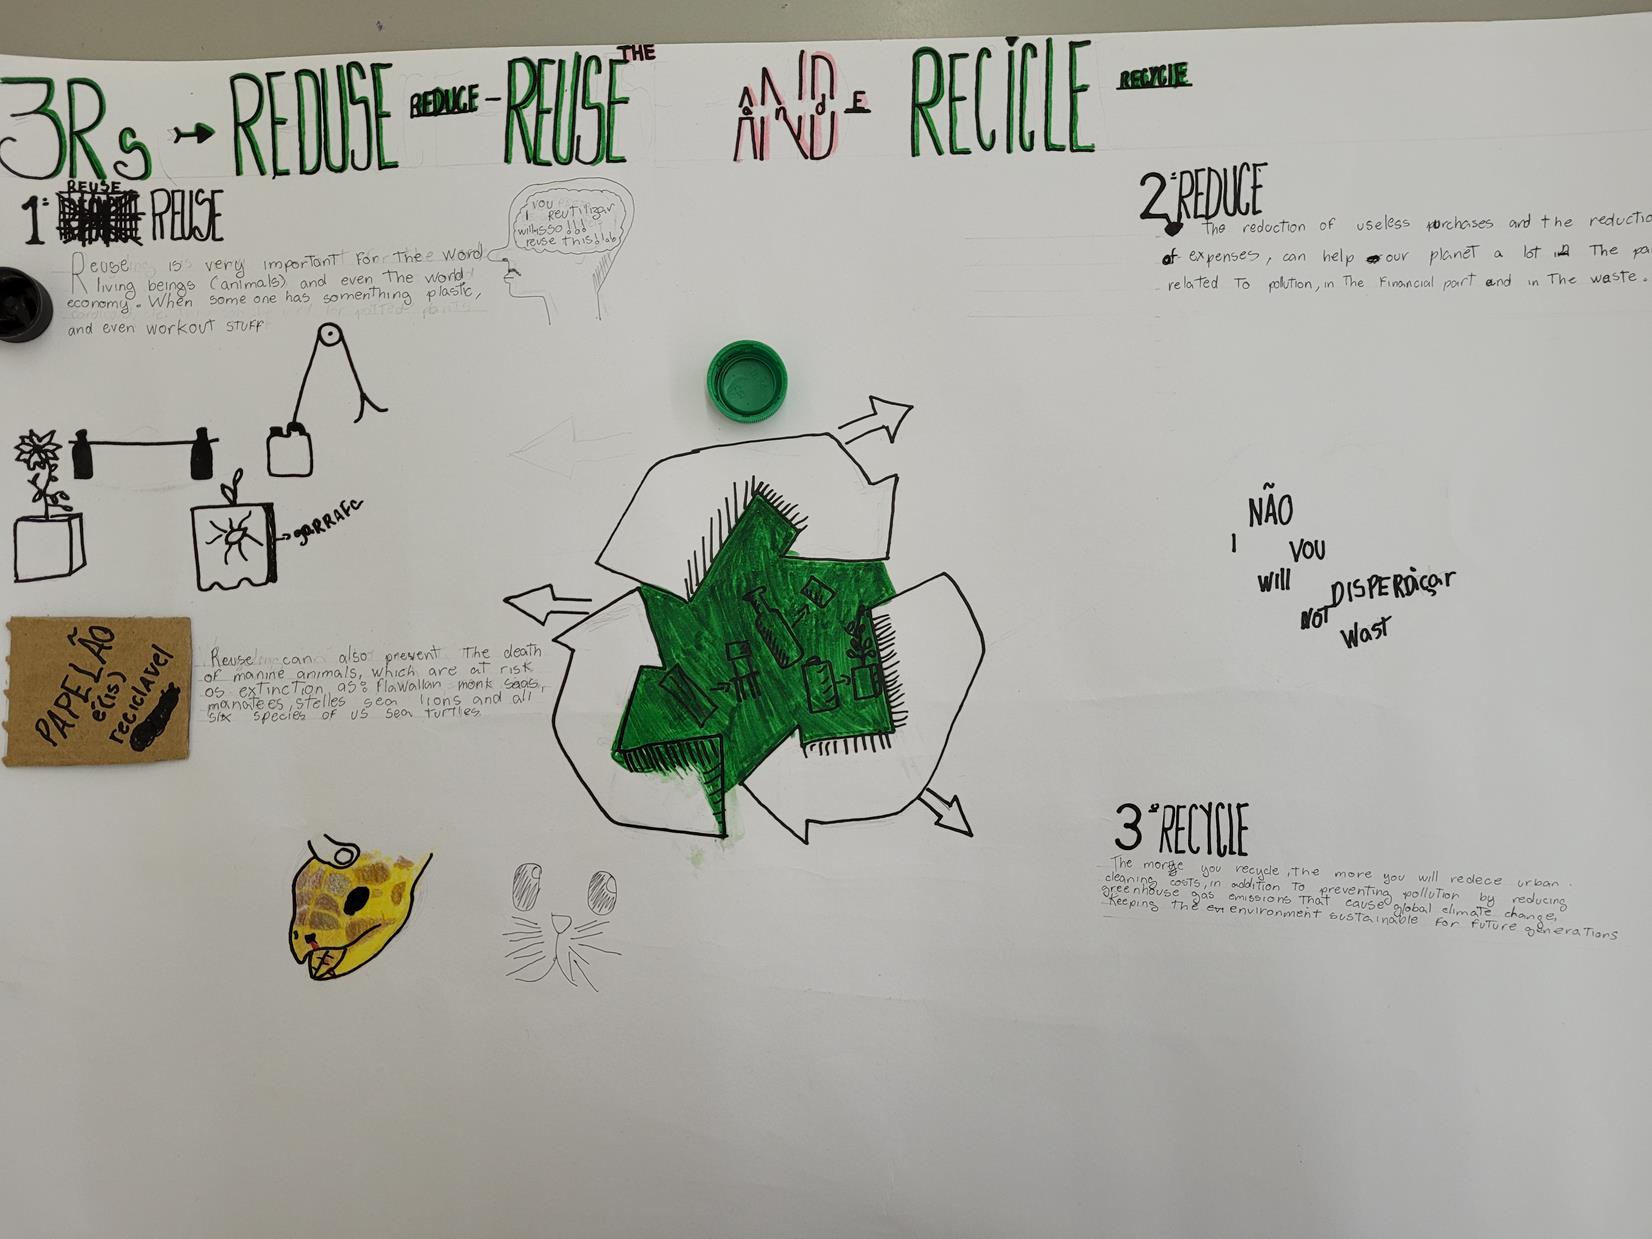 3Rs → REDUSE REDUCE - REUSE THE AND and E RECICLE RECYCLE
1º REUSE REUSE
Reuse is very important for the word
living beings (animals) and even the world
economy. When some one has somenthing plastic,
and even workout stuff
VOU
I REUTILIZAR
will
reuse this
GARRAFA
PAPELÃO
é(is)
reciclavel
Reuse can also prevent the death
of manine animals, which are at risk
os extinction as: Hawallan monk seas,
manatees, stelles sea lions and all
six species of US sea turtles
2º REDUCE
The reduction of useless purchases and the reductio
of expenses, can help our planet a lot in The pa
related To polution, in The Financial part and in The waste.
NÃO
I VOU
Will DISPERdiçar
NOT
Wast
3º RECYCLE
The more you recycle, the more you will redece urban
cleaning costs, in addition to preventing pollution by reducing
greenhouse gas emissions that cause global climate change,
keeping the environment sustainable for future generations